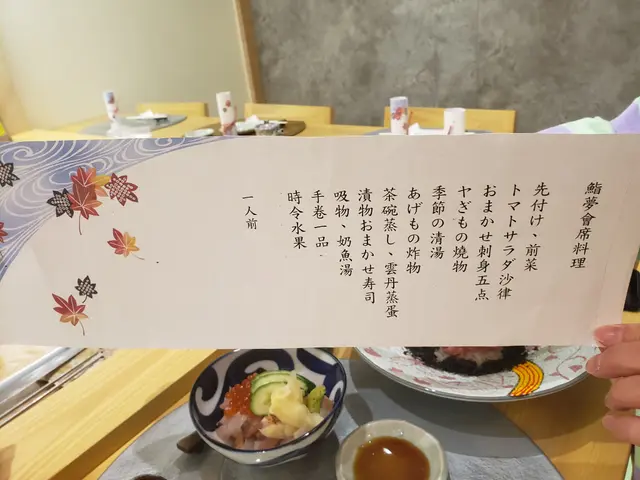 鮨夢會席料理
先付け、前菜
トマトサラダ沙律
おまかせ刺身五点
ヤぎもの燒物
季節の清湯
あげもの炸物
茶碗蒸し、雲丹蒸蛋
漬物おまかせ寿司
吸物、奶魚湯
手巻一品
時令水果
一人前